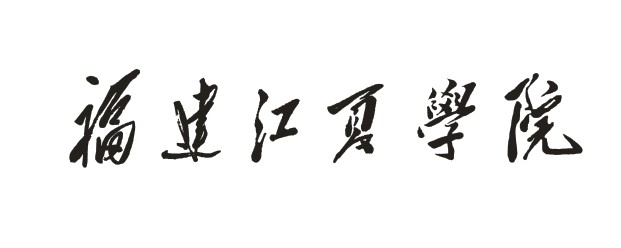 福建江夏學院